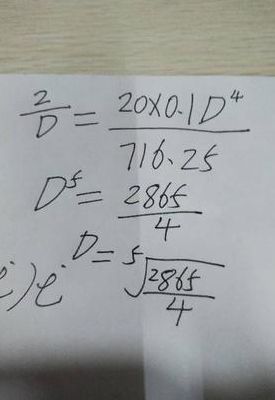 2/D = 20×0.1D⁴/716.25
D⁵ = 2865/4
D = ⁵√(2865/4)